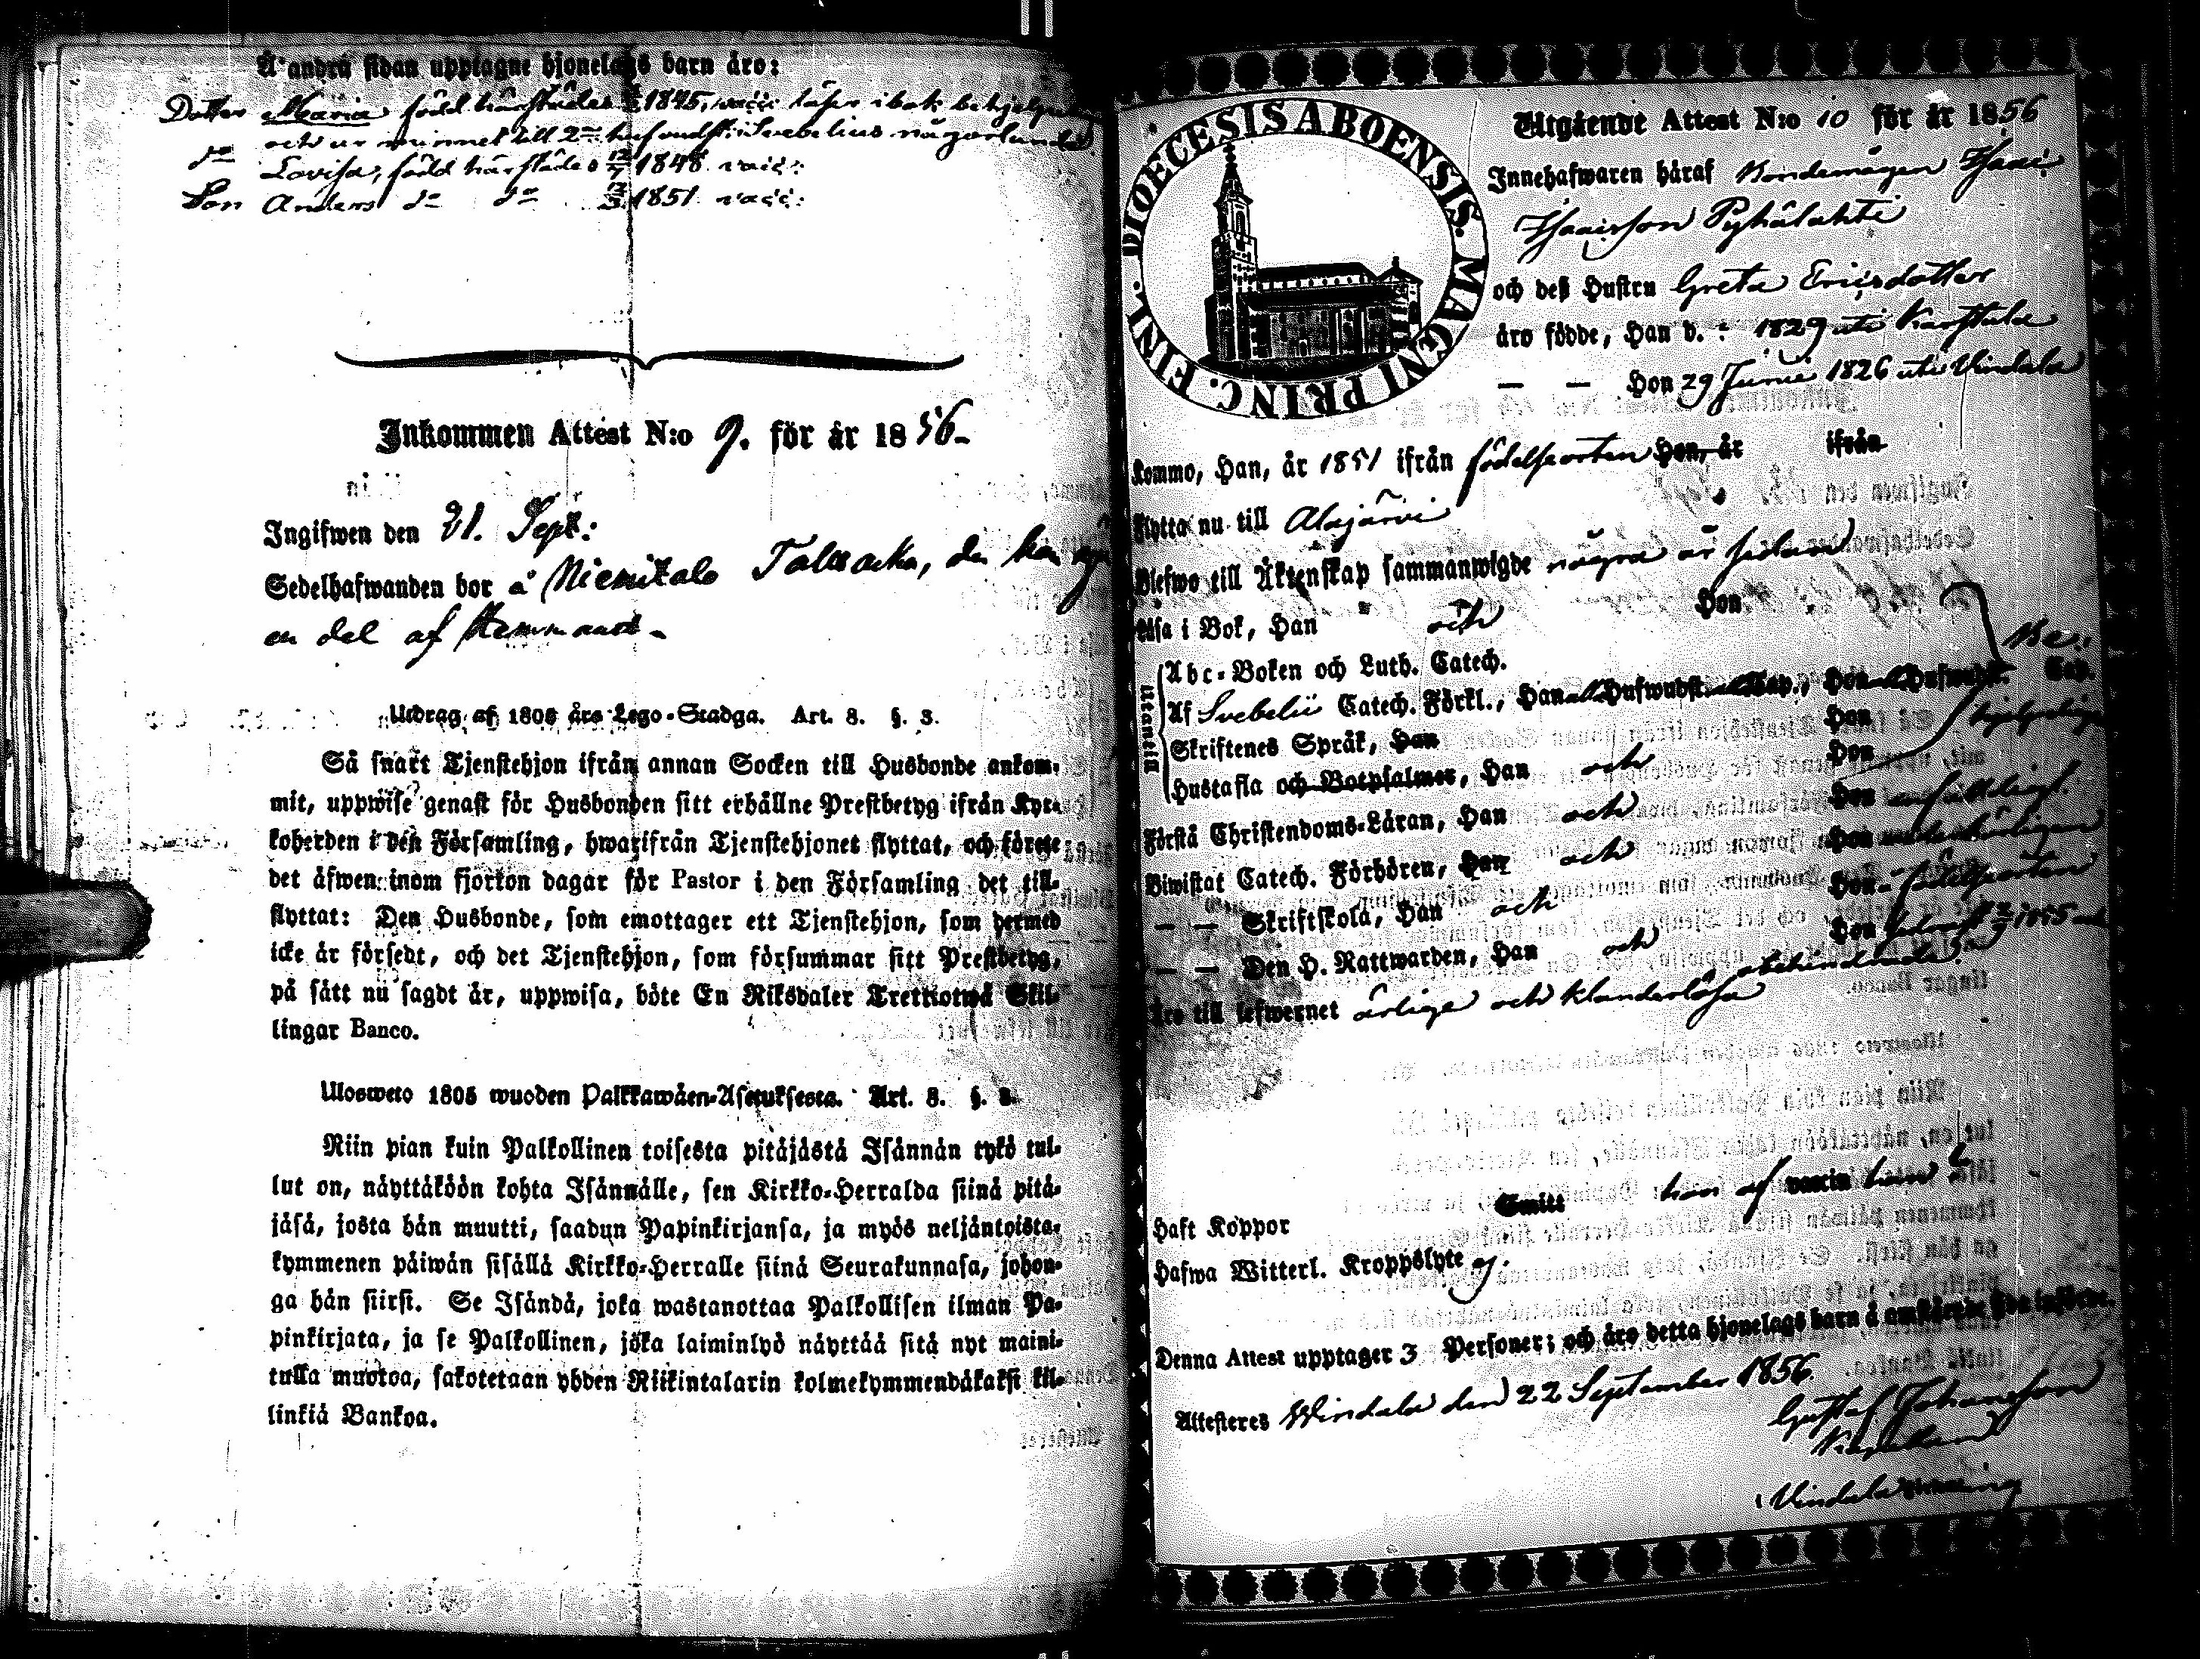 Å andra sidan upptagne hjonelags barn äro:
Dotter Maria född härstädes 1845, vacc: läser i bok behjelpl
och ur minnet till 2 hufvudst: i Svebelius någorlunda
do Lovisa, född härstädes 12/7 1848 vacc:
Son Anders do do 1851 vacc:
Inkommen Attest N:o 9. för år 1856-
Ingifwen den 21. Sept:
Sedelhafwanden bor å Niemikalo, der han
en del af Hemmanet-
Utdrag af 1805 års Lego-Stadga. Art. 8. §. 3.
Så snart Tjenstehjon ifrån annan Socken till Husbonde ankom-
mit, uppwise genast för Husbonden sitt erhållne Prestbetyg ifrån Kyr-
koherden i den Församling, hwarifrån Tjenstehjonet flyttat, och förete
det äfwen inom fjorton dagar för Pastor i den Församling det till-
flyttat: Den Husbonde, som emottager ett Tjenstehjon, som dermed
icke är försedt, och det Tjenstehjon, som försummar sitt Prestbetyg,
på sätt nu sagdt är, uppwisa, böte En Riksdaler Trettiotwå Skil-
lingar Banco.
Ulosweto 1805 wuoden Palkkawäen-Asetuksesta. Art. 8. §. 3.
Niin pian kuin Palkollinen toisesta pitäjästä Isännän tykö tul-
lut on, näyttäköön kohta Isännälle, sen Kirkko-Herralda siinä pitä-
jäsä, josta hän muutti, saadun Papinkirjansa, ja myös neljäntoista-
kymmenen päiwän sisällä Kirkko-Herralle siinä Seurakunnasa, johon-
ga hän siirsi. Se Isändä, joka wastanottaa Palkollisen ilman Pa-
pinkirjata, ja se Palkollinen, joka laiminlyö näyttää sitä nyt maini-
tulla muotoa, sakotetaan yhden Riikintalarin kolmekymmendäkaksi kil-
linkiä Bankoa.
DIOECESIS ABOENSIS. MAGNI PRINC. FINL.
Utgående Attest N:o 10 för år 1856
Innehafwaren häraf Bondemågen Isaac
Isaacsson Pyhälahti
och deß Hustru Greta Ericsdotter
äro födde, Han d. : 1829 uti Karstula
— — Hon 29 Junii 1826 uti Vindala
Kommo, Han, år 1851 ifrån födelseorten Hon, år ifrån
flytta nu till Alajärvi
Blefwo till Äktenskap sammanwigde några år sedan
Läsa i Bok, Han och Hon
Utantill
Abc-Boken och Luth. Catech.
Af Svebelii Catech. Förkl., Han Hufwudst. Cap., Hon Hufwudst. Cap.
Skriftenes Språk, Han Hon
Hustafla och Botpsalmer, Han och Hon
Förstå Christendoms-Läran, Han och Hon enfaldigt.
Biwistat Catech. Förhören, Han och Hon
— — Skriftskola, Han och Hon födelseorten
— — Den H. Nattwarden, Han och Hon 1855
Äro till lefwernet ärlige och klanderlösa obehindrade
Haft Koppor Smitt han af vaccin hon
Hafwa Witterl. Kroppslyte ej.
Denna Attest upptager 3 Personer; och äro detta hjonelags barn å omstående sida införde.
Attesteres Windala den 22 September 1856.
Gustaf Johansson
Kapellan
Vindala